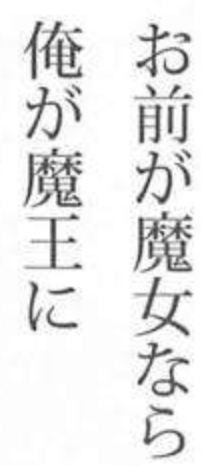 お前が魔女なら
俺が魔王に